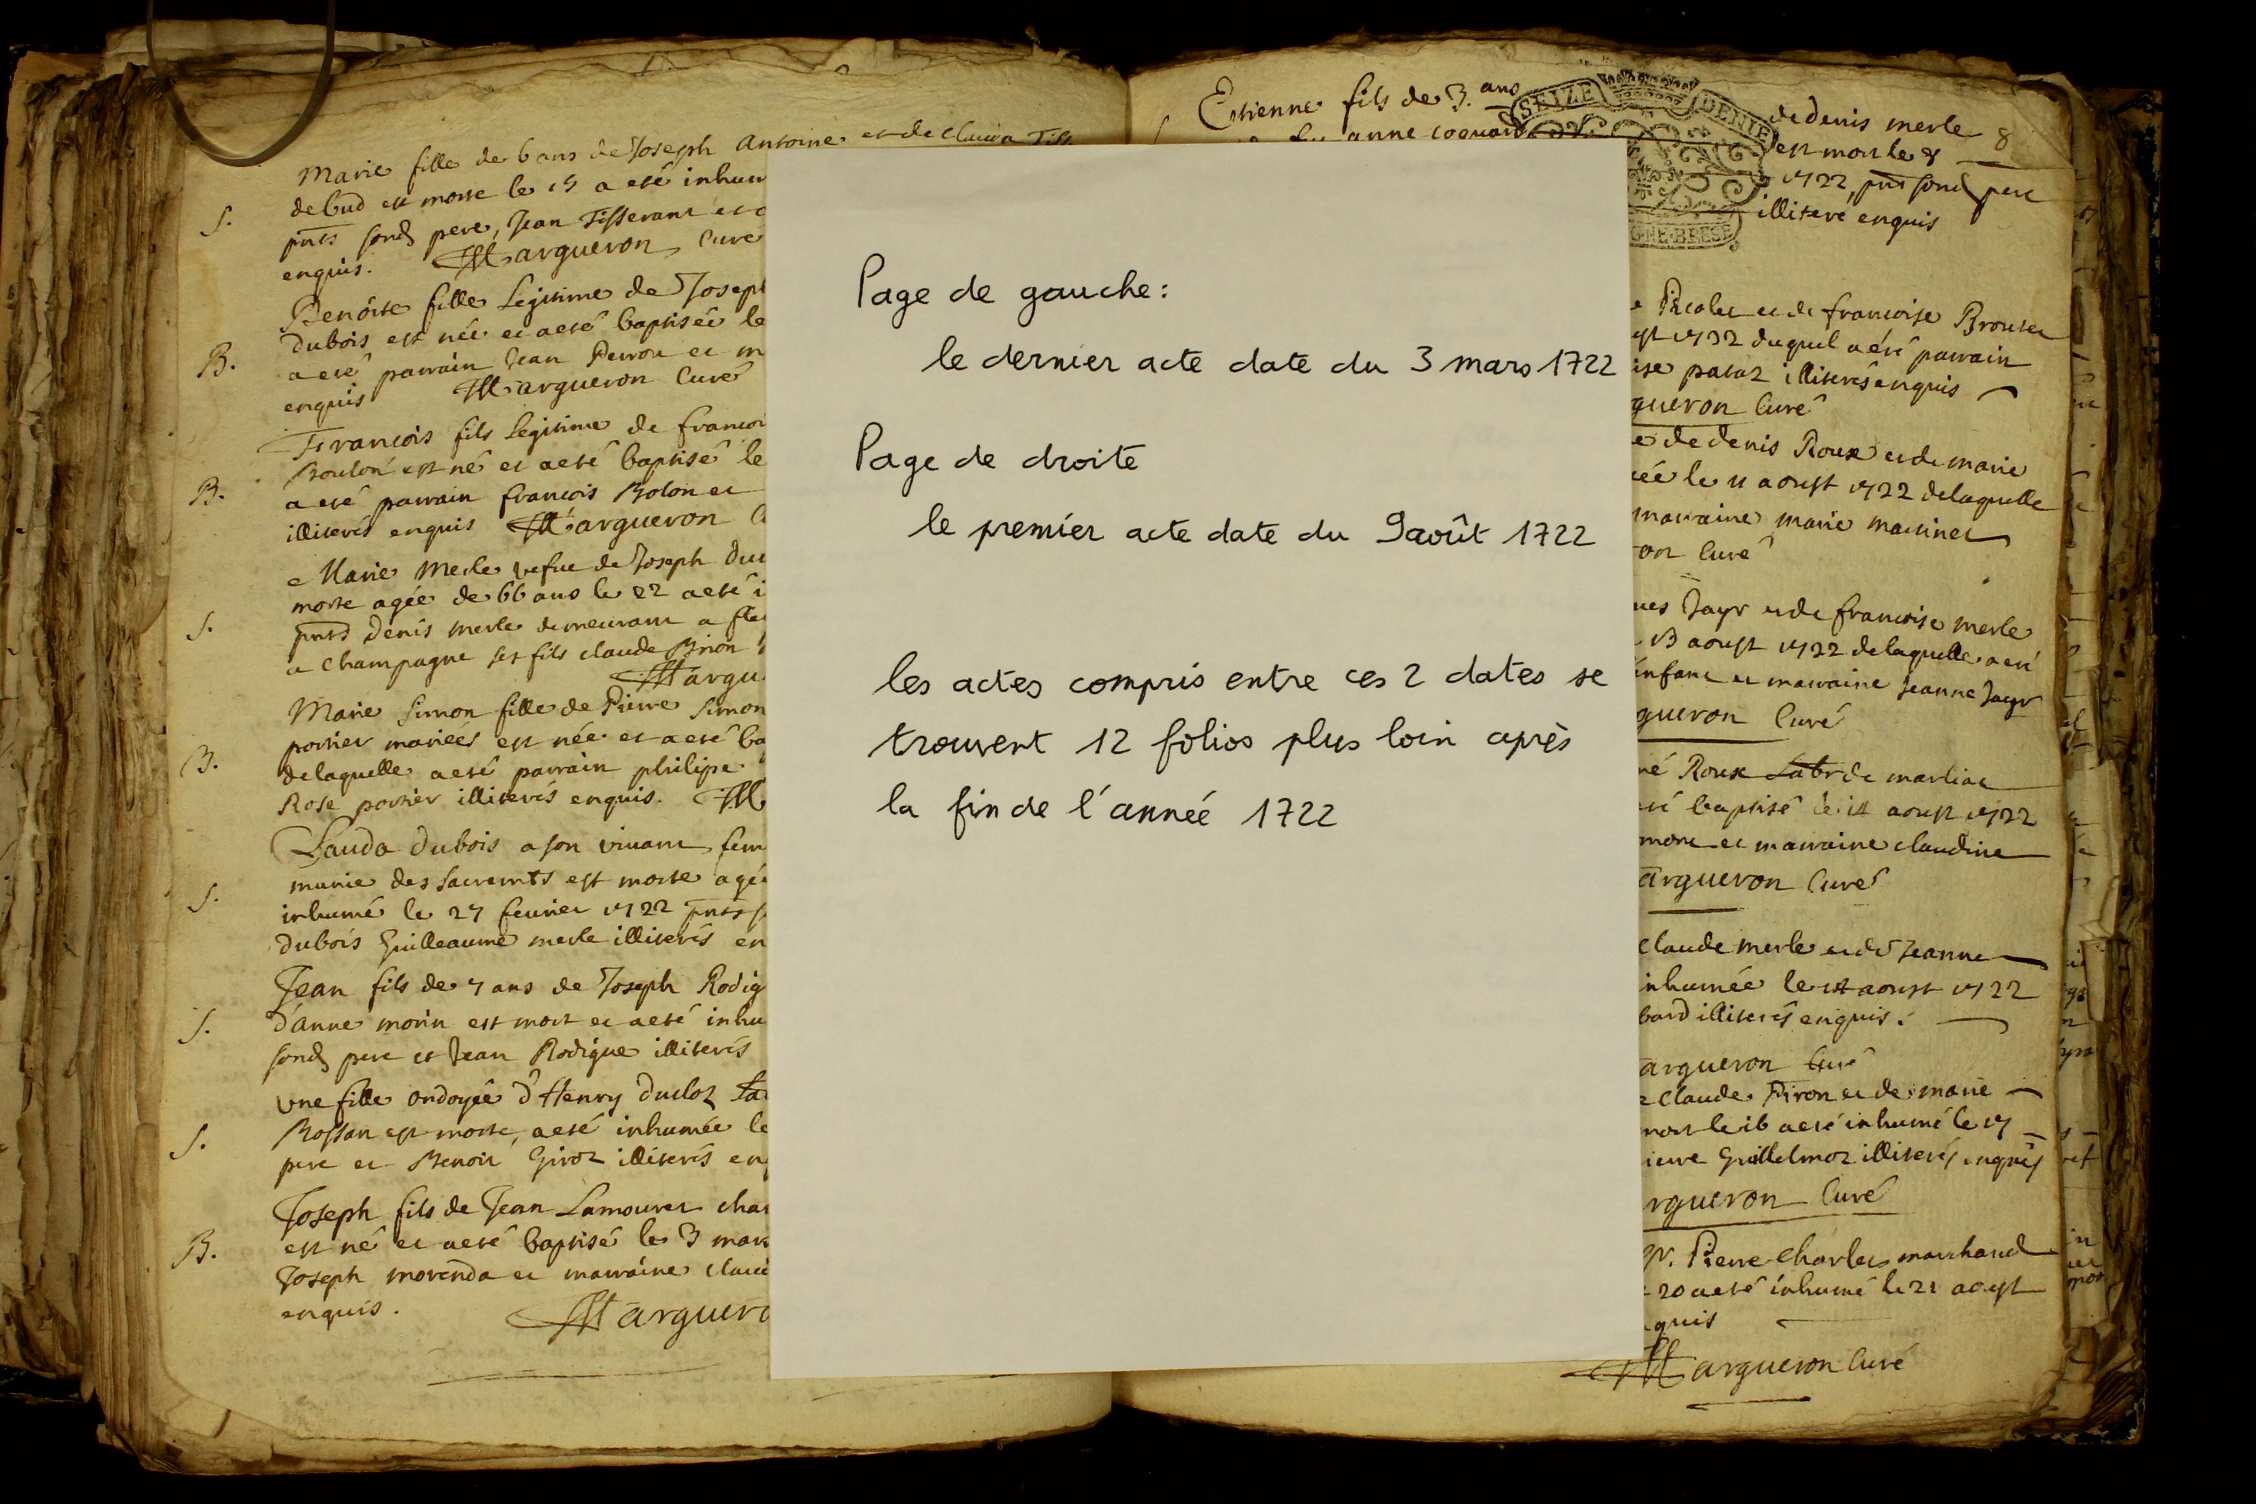 Marie fille de 6 ans de Joseph Antoine et de
debud est morte le 15 a eté inhum
pnts sond pere, Jean Tisserant et
S.
enquis. Margueron Curé
Benoite fille Legitime de Joseph
dubois est née et a eté baptisée le
B.
a eté parrain Jean Perron et m
enquis Margueron Curé
François fils Legitime de françoi
Bouloné est né et a eté baptisé le
B.
a eté parrain françois Bolon et
illiterés enquis Margueron C
Marie Merle vefue de Joseph Du
morte agée de 66 ans le 22 a eté i
S.
pnts Denis Merle demeurant a fle
a Champagne ses fils claude Brion
Margu
Marie Simon fille de Pierre Simon
portier mariées est née et a eté ba
B.
delaquelle a eté parrain philipe
Rose portier illiterés enquis. M
Clauda dubois a son vivant fem
munie des sacremts est morte agé
S.
inhumé le 27 feurier 1722 pnts
dubois Guilleaume merle illiterés en
Jean fils de 7 ans de Joseph Rodig
d'anne morin est mort et a eté inhu
S.
sond pere et Jean Rodigue illiterés
Une fille ondoyée d'Henry Ducloz
Rossan est morte, a eté inhumée le
S.
pere et Benoit Giroz illiterés enq
Joseph fils de Jean Lamouret cha
est né et a eté baptisé le 3 mars
B.
Joseph morenda et marraine clau
enquis.
Marguero
Page de gauche:
le dernier acte date du 3 mars 1722
Page de droite
le premier acte date du 9 août 1722
les actes compris entre ces 2 dates se
trouvent 12 folios plus loin après
la fin de l'année 1722
Estienne fils de 3. ans de denis merle
SEIZE DENIE
8
anne est mort le 8
1722, pnts sond pere
illiteré enquis
GNE·BRESE
Picolet et de françoise Brouter
st 1722 duquel a éte parrain
ise pataz illiterés enquis
gueron Curé
e de denis Roux et de marie
ée le 11 aoust 1722 delaquelle
marraine marie martinet
on Curé
ues Jayr et de françoise merle
13 aoust 1722 delaquelle a eté
enfant et marraine Jeanne Jayr
gueron Curé
né Roux de marliac
eté baptisé le 14 aoust 1722
mont et marraine claudine
argueron Curé
Claude merle et de Jeanne
inhumée le 14 aoust 1722
bard illiterés enquis.
argueron Curé
e Claude Piron et de marie
mort le 16 a eté inhumé le 17
ierre Guillelmoz illiterés enquis
rgueron Curé
Pierre Charles marchand
20 a eté inhumé le 21 aoust
quis
Margueron Curé